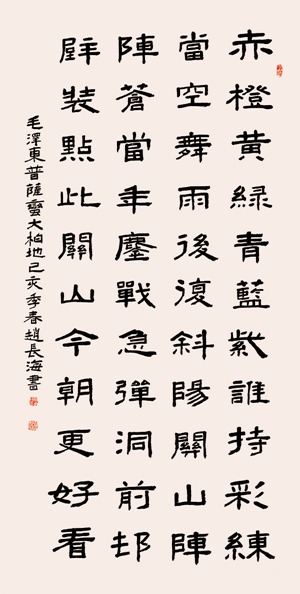 赤橙黄緑青藍紫誰持彩練
當空舞雨後復斜陽關山陣
陣蒼當年鏖戰急彈洞前邨
壁裝點此關山今朝更好看
毛澤東菩薩蠻大柏地己亥季春趙長海書